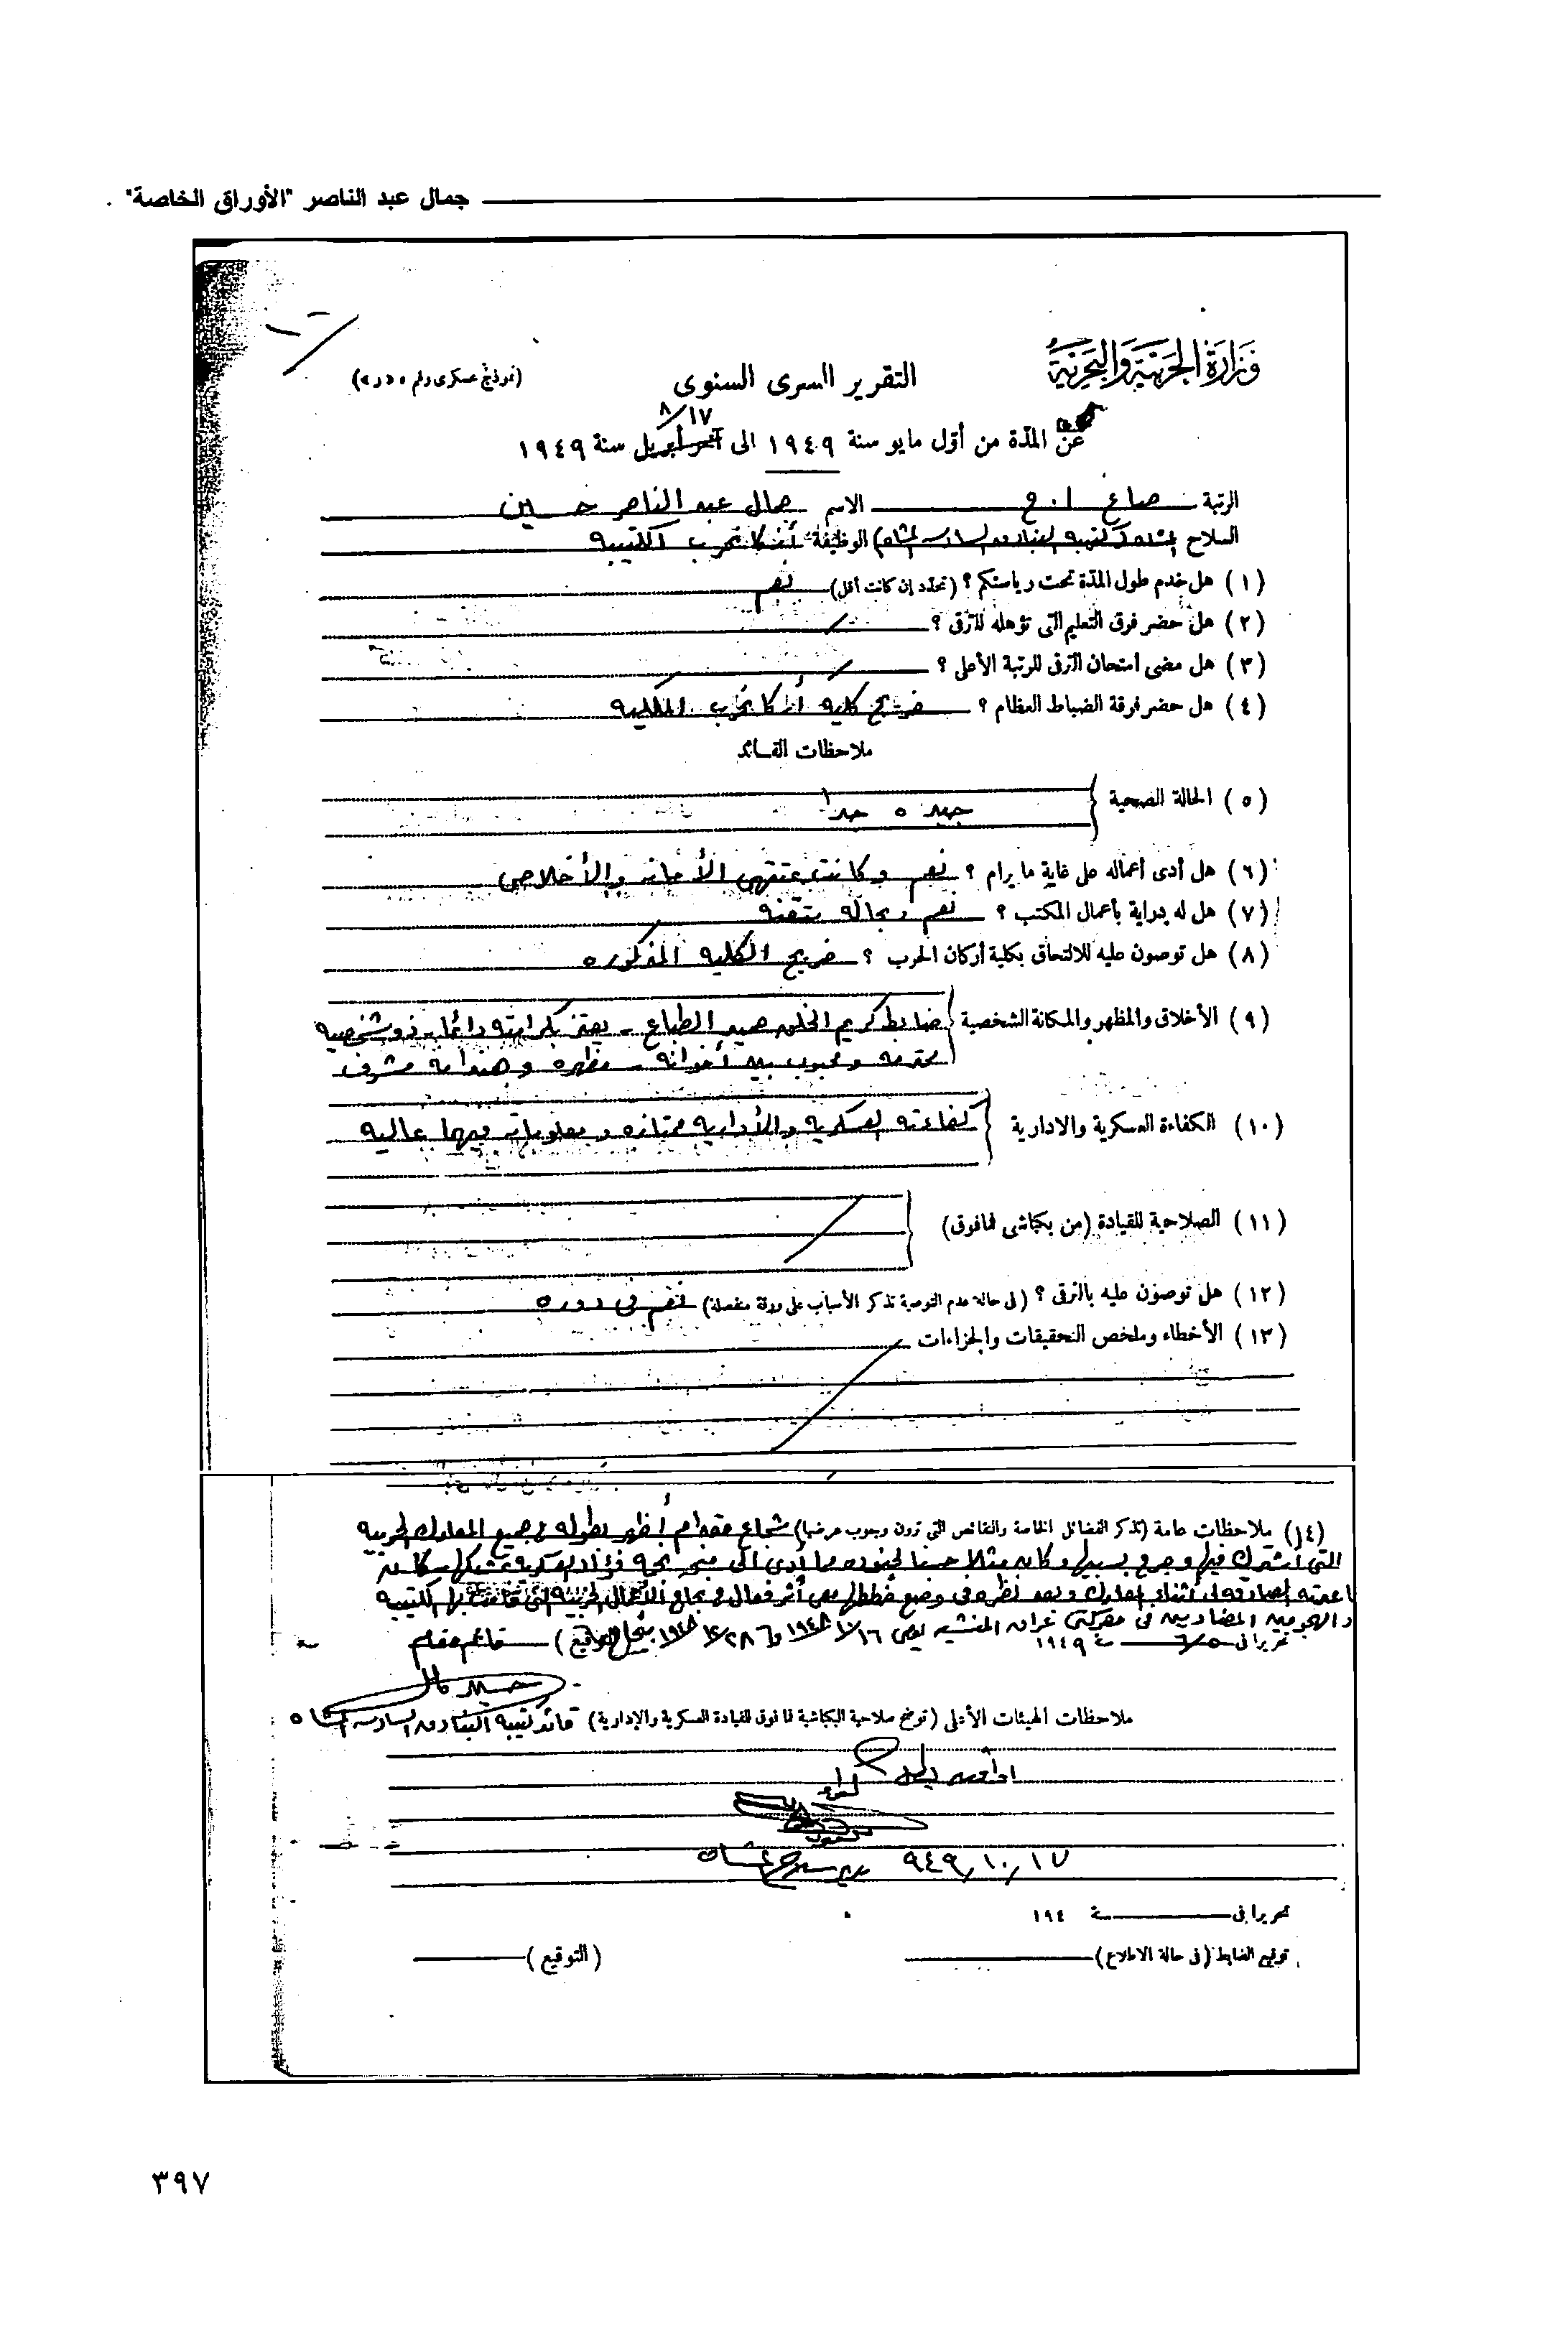 جمال عبد الناصر "الأوراق الخاصة"
وزارة الحربية والبحرية
التقرير السرى السنوى
(نموذج عسكرى رقم
٨/١٧
عن المدّة من أوّل مايو سنة ١٩٤٩ الى آخر أبريل سنة ١٩٤٩
الرتبة صاغ ا . ح الاسم جمال عبد الناصر حسين
السلاح المشاه (كتيبة البنادق السادسة المشاه) الوظيفة أركانحرب الكتيبة
(١) هل خدم طول المدّة تحت رياستكم ؟ (تحدّد إن كانت أقل) نعم
(٢) هل حضر فرق التعليم التى تؤهله للترقى ؟
(٣) هل مضى امتحان الترقى للرتبة الأعلى ؟
(٤) هل حضر فرقة الضباط العظام ؟ خريج كلية أركانحرب الملكية
ملاحظات القـائد
(٥) الحالة الصحية جيده جدا
(٦) هل أدى أعماله على غاية ما يرام ؟ نعم وكانت بمنتهى الأمانه والأخلاص
(٧) هل له دراية بأعمال المكتب ؟ نعم وبحاله متقنه
(٨) هل توصون عليه للالتحاق بكلية أركان الحرب ؟ خريج الكليه المذكوره
(٩) الأخلاق والمظهر والمكانة الشخصية ضابط كريم الخلق حميد الطباع - يعتز بكرامته دائما - ذو شخصيه
محترمه ومحبوب بين أخوانه - مظهره وهندامه مشرف
(١٠) الكفاءة العسكرية والادارية كفاءته العسكريه والأداريه ممتازه ومعلوماته فيهما عاليه
(١١) الصلاحية للقيادة (من بكباشى فما فوق)
(١٢) هل توصون عليه بالترقى ؟ (فى حالة عدم التوصية تذكر الأسباب على ورقة منفصلة) نعم فى دوره
(١٣) الأخطاء وملخص التحقيقات والجزاءات
(١٤) ملاحظات عامة (تذكر الفضائل الخاصة والنقائص التى ترون وجوب عرضها) شجاع مقدام أظهر بطوله فى جميع المعارك الحربيه
التى أشترك فيها وجرح بسببها وكان مثلا حسنا لجنوده مما أدى الى منحه نجمة فؤاد العسكريه كانت
أثناء المعارك وبعد نظره فى وضع خططها أثر فعال فى نجاح الأعمال الحربيه التى قامت بها الكتيبه
والهجومين المضادين فى معركتى عراق المنشيه يومى ١٠/١٦/١٩٤٨ و ١٢/٢٨/١٩٤٨
تحريرا فى ٦/٥ سنة ١٩٤٩ (التوقيع) قائمقام
ملاحظات الهيئات الأعلى (توضح صلاحية البكباشية فما فوق للقيادة العسكرية والإدارية) قائد كتيبة البنادق السادسه المشاه
لواء
٩٤٩/١٠/١٧ مدير سلاح المشاه
تحريرا فى سنة ١٩٤
توقيع الضابط (فى حالة الاطلاع) (التوقيع)
٣٩٧